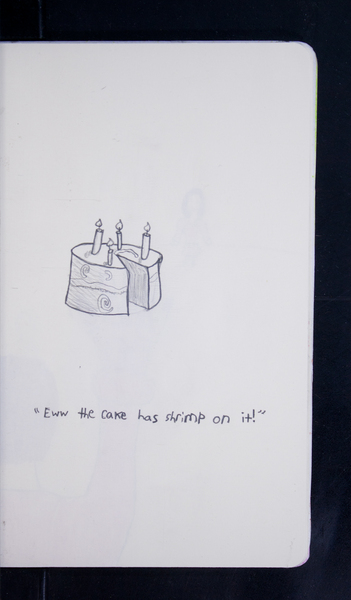 "Eww the cake has shrimp on it!"